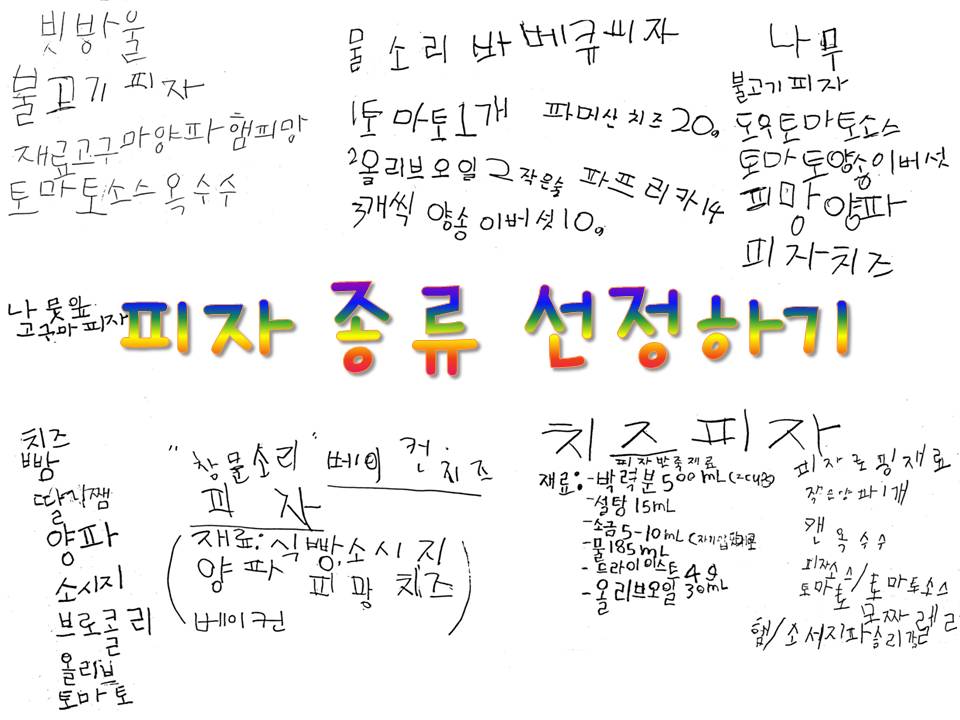 빗방울
불고기 피자
재료고구마양파햄피망
토마토소스옥수수
물소리 바베큐피자
1토마토1개 파머산치즈 20g
2올리브오일 2 작은술 파프리카 14
3개씩 양송이버섯10g
나무
불고기피자
토마토소스
토마토양송이버섯
피망양파
피자치즈
나뭇잎
고구마피자
피자 종류 선정하기
치즈
빵
딸기잼
양파
소시지
브로콜리
올리브
토마토
"창문소리" 베이컨치즈
피자
(재료:식빵,소시지
양파 피망 치즈
베이컨)
치즈피자
피자반죽재료
재료:-박력분 500mL(2cup)
-설탕 15mL
-소금 5-10mL
-물185mL
-드라이이스트 4g
-올리브오일 30mL
피자토핑재료
작은양파1개
캔옥수수
피자소스
토마토/토마토소스
모짜렐라
햄/소세지